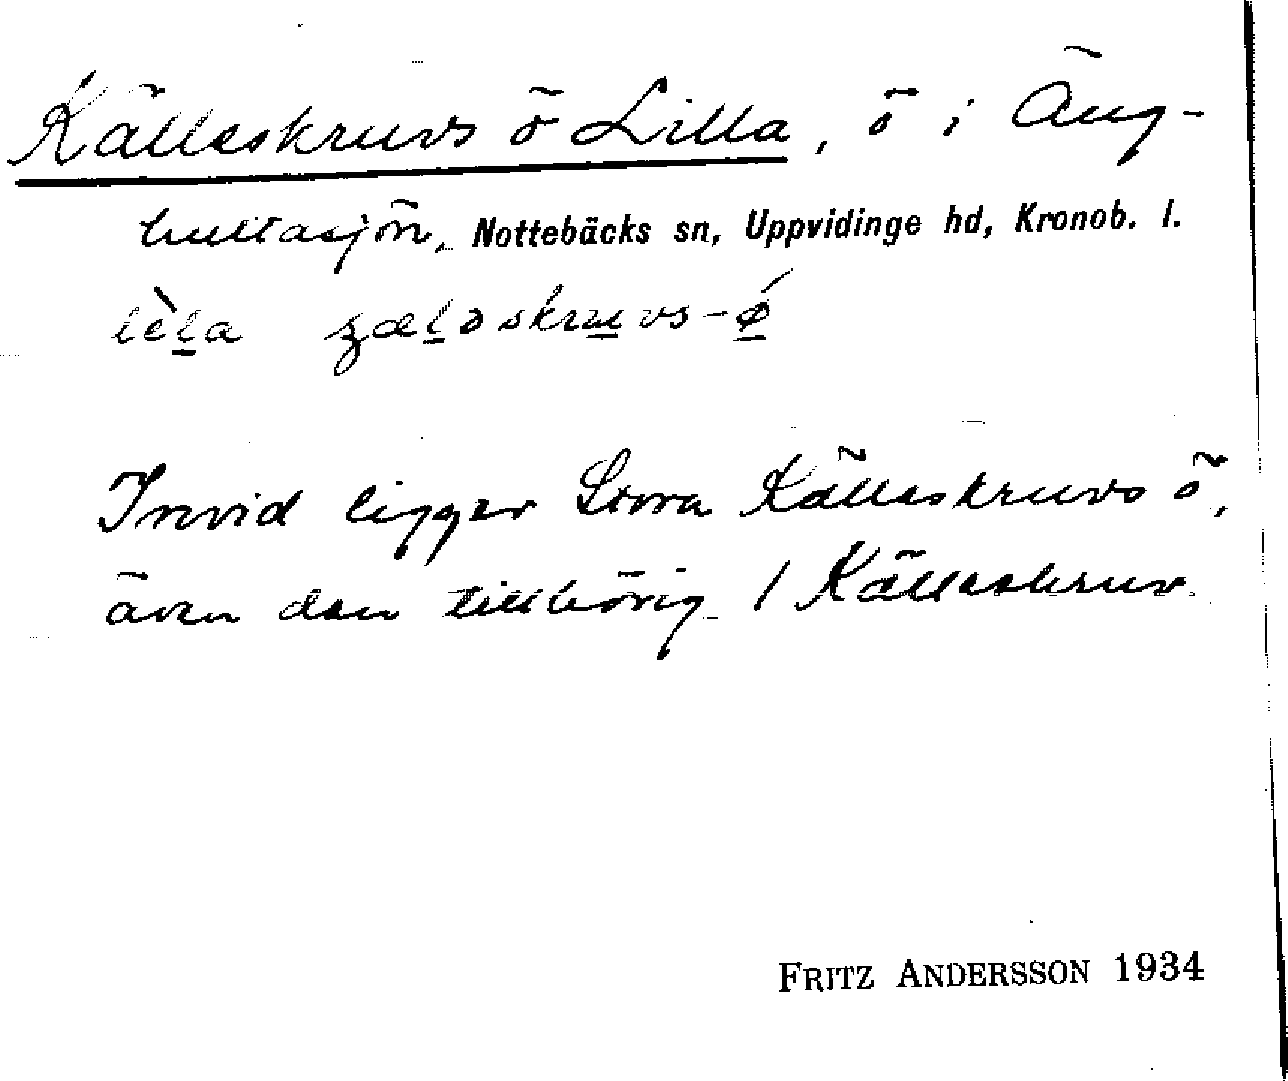 Källeskruvs ö Lilla, ö i Äng-
hultasjön, Nottebäcks sn, Uppvidinge hd, Kronob. l.
lèl̲a ʒæl̲əskru̲vs-ǿ̲
Invid ligger Stora Källeskruvs ö,
även den tillhörig / Källeskruv.
FRITZ ANDERSSON 1934